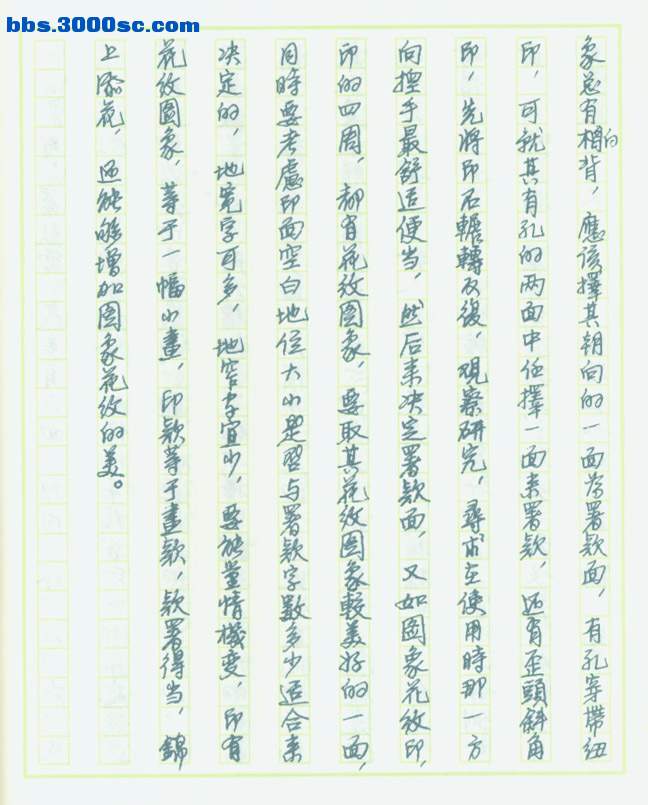 bbs.3000sc.com
象总有相的背，應該擇其朝向的一面為署款面，有孔穿帶纽
印，可就其有孔的两面中任擇一面来署款，还有歪頭斜角
印，先將印石輾轉反復，观察研究，尋求在使用時那一方
向握手最舒适便当，然后来决定署款面，又如圖象花纹印，
印的四周，都有花纹圖象，要取其花纹圖象較美好的一面，
同時要考慮印面空白地位大小是否与署款字數多少适合来
决定的，地宽字可多，地窄字宜少，要能量情機变，印有
花纹圖象，等于一幅小畫，印款等于畫款，款署得当，錦
上添花，还能够增加圖象花纹的美。